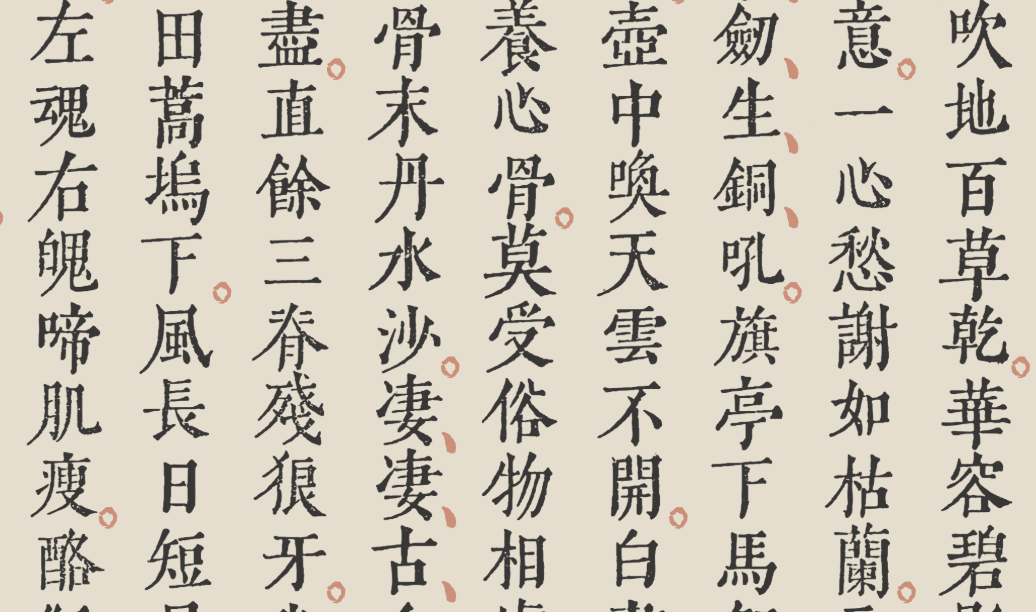 吹地百草乾。華容碧
意。一心愁謝如枯蘭。
劒、生、銅、吼。旗亭下馬
壺中喚天雲不開。白
養心骨。莫受俗物相
骨末丹水沙。凄、凄、古、
盡。直餘三脊殘狼牙。
田蒿塢下。風長日短
左魂右魄啼肌瘦。酪